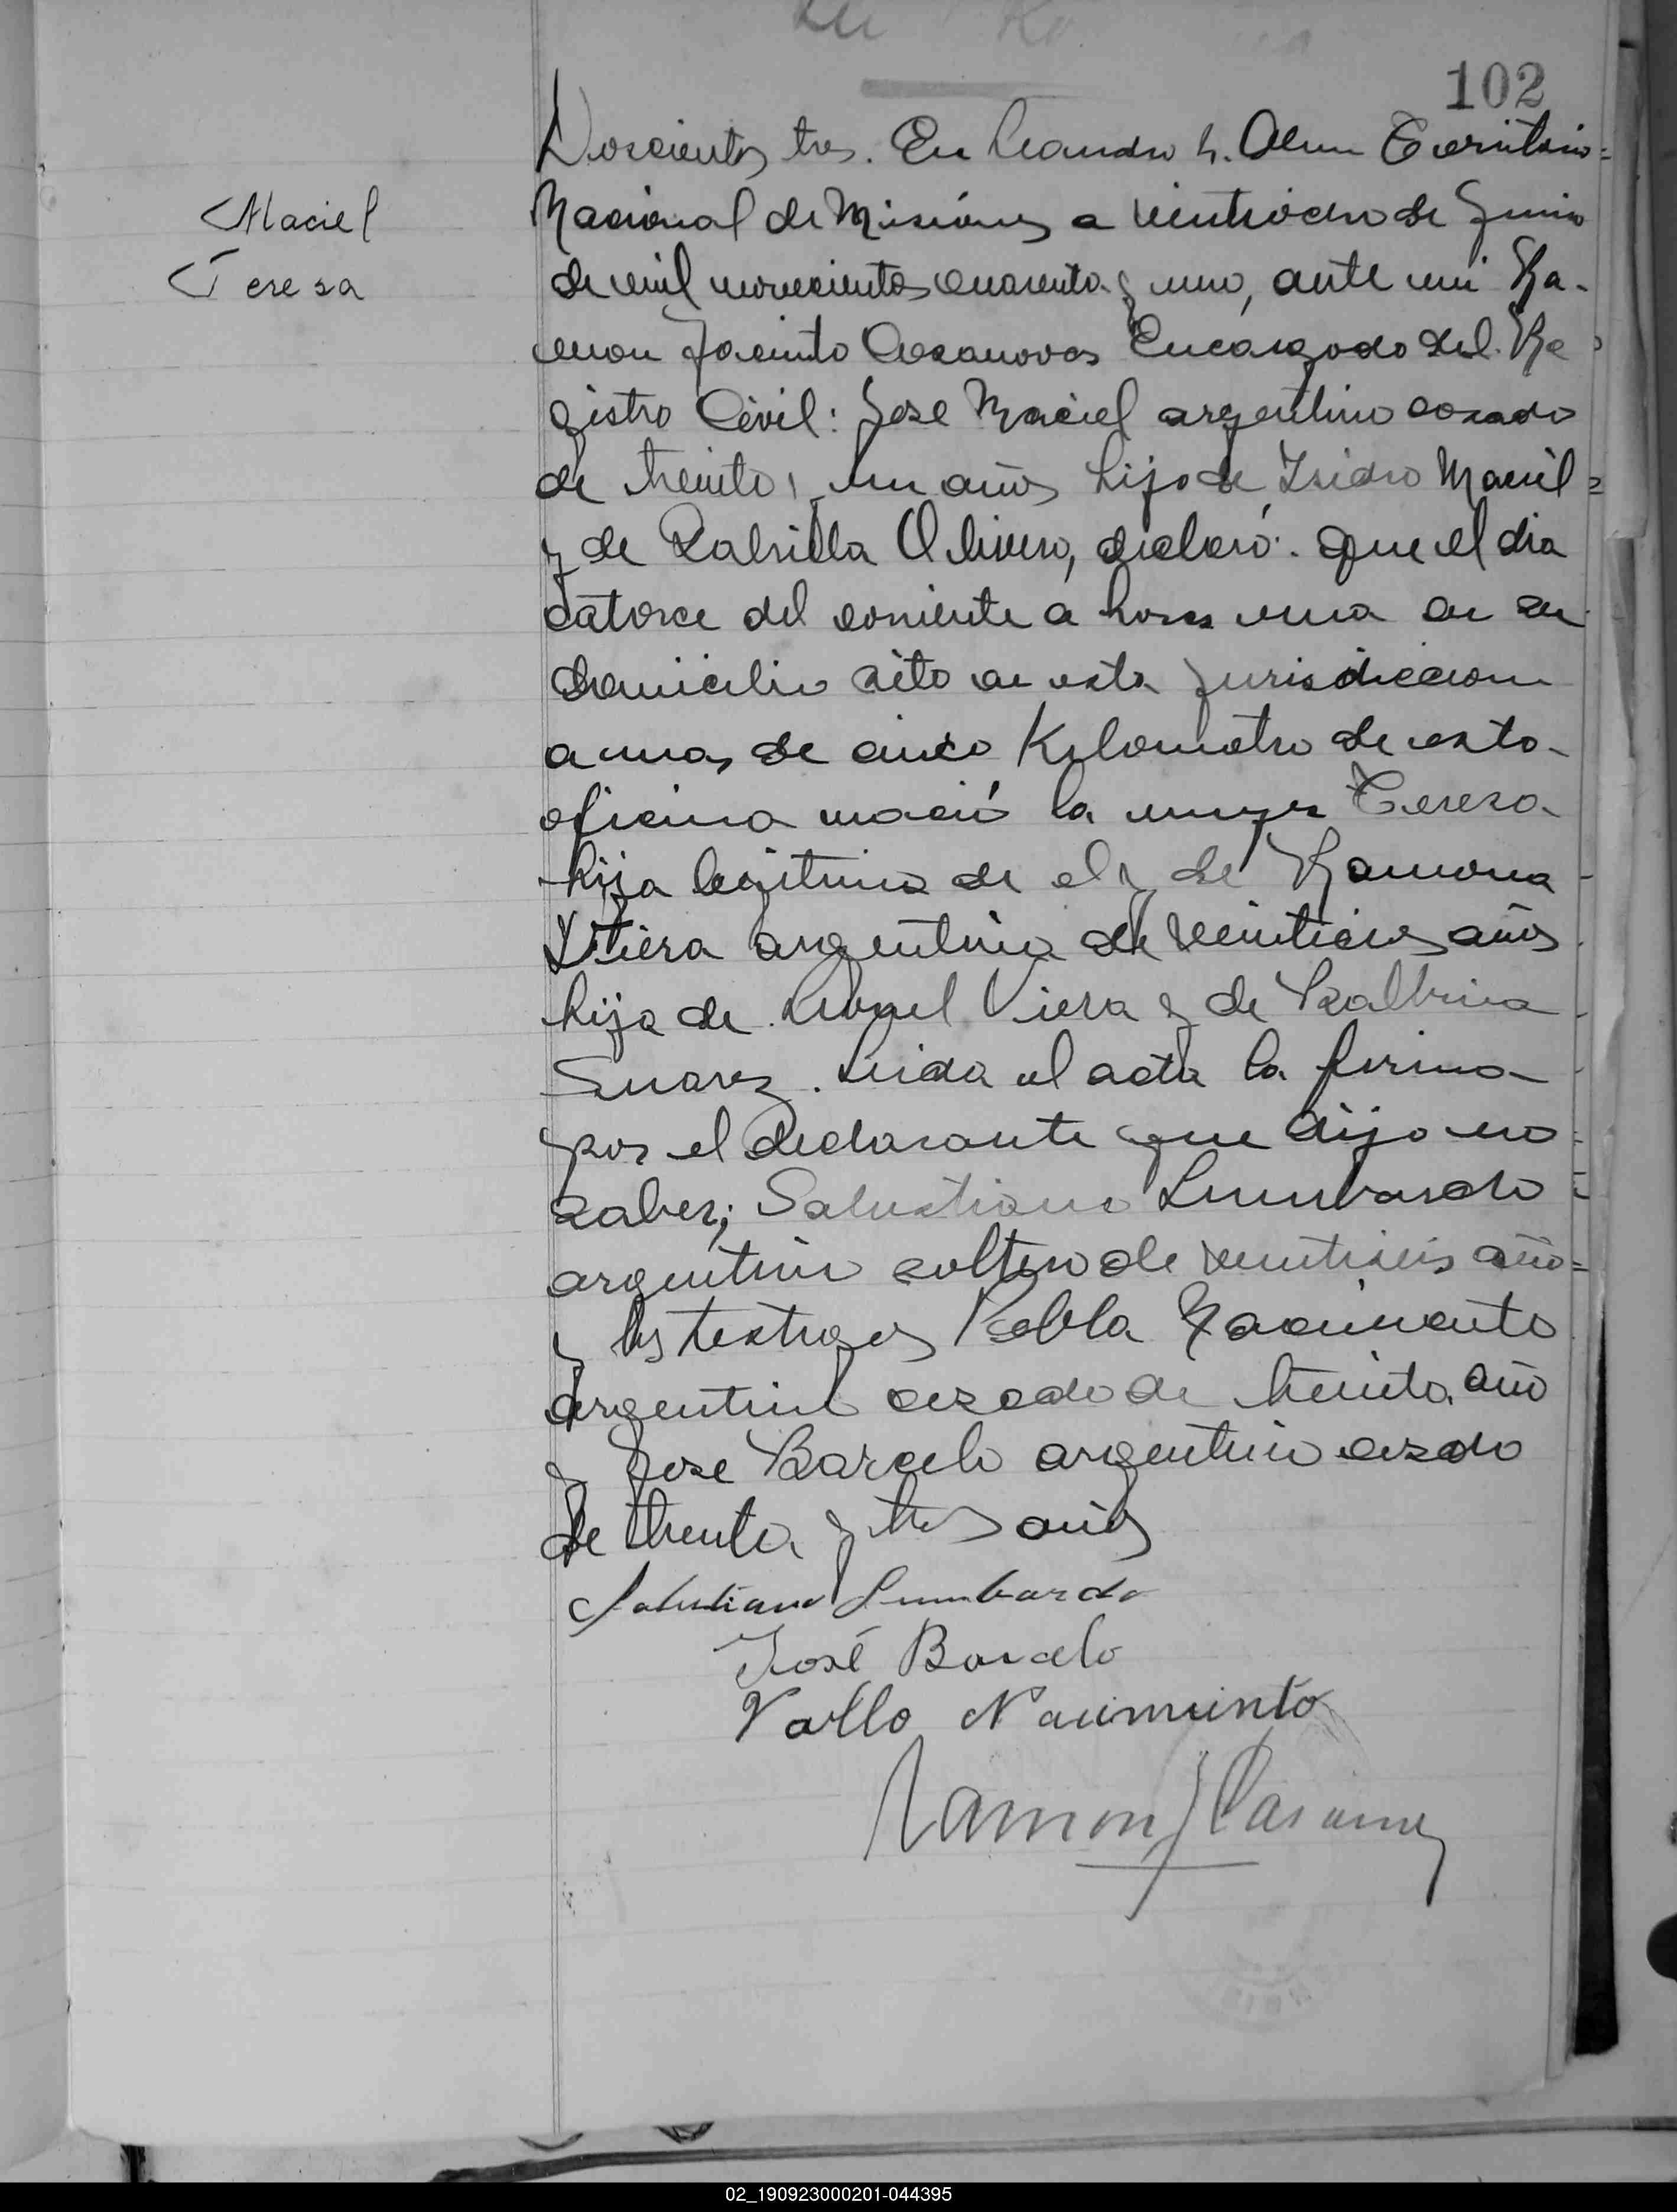 102
Maciel
Teresa
Doscientos tres. En Leandro N. Alem Territorio
Nacional de Misiónes a veintiocho de Junio
de mil novecientos cuarenta y uno, ante mi Ra-
mon Jacinto Casanovas Encargado del Re
gistro Civil: Jose Maciel argentino casado
de treinta y un años hijo de Isidro Maciel
y de Olivera, declaró: que el dia
catorce del corriente a horas una en su
domicilio sito en esta jurisdiccion
a mas de cinco Kilometro de esta
oficina nació la mujer Teresa
hija legitima de el y de Ramona
Viera argentina de años
hija de Viera y de Balbina
Suarez. Leida el acta la firma
por el declarante que dijo no
saber; Salustiano Lumbardo
argentino soltero de veintiseis año
y los testigos Nacimento
argentino casado de treinta año
y Jose Barcelo argentino casado
de trenta y tres años
Salustiano Lumbardo
José Barcelo
Nacimiento
Ramon J Casanovas
02_190923000201-044395